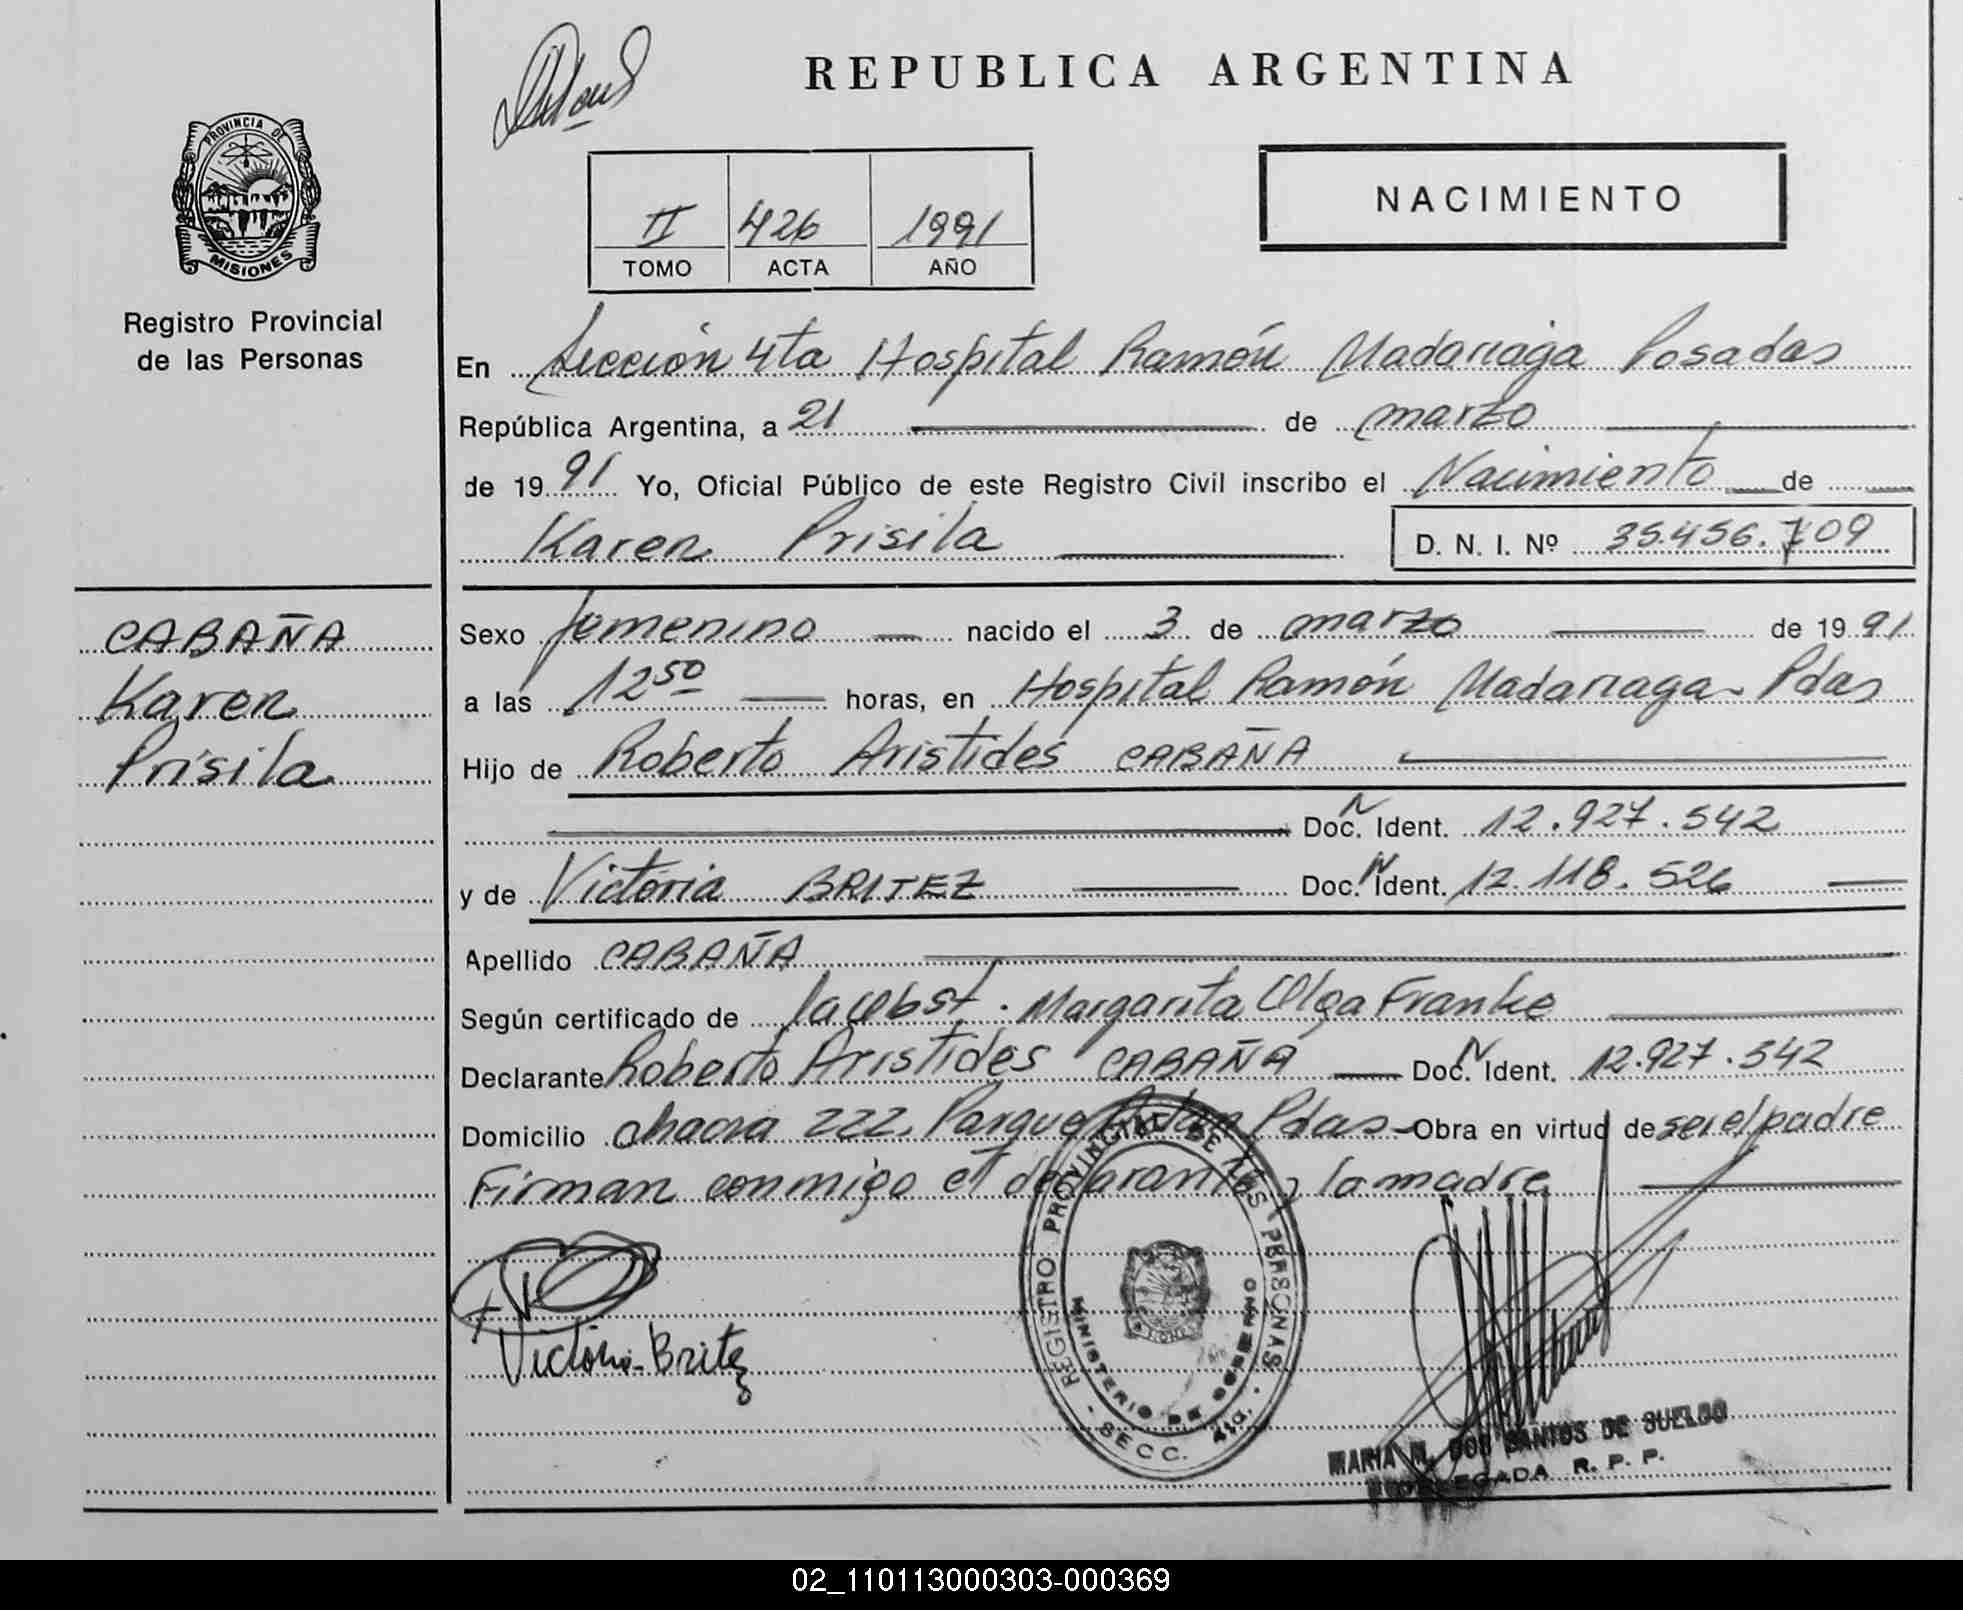 REPUBLICA ARGENTINA
PROVINCIA DE
MISIONES
Registro Provincial
de las Personas
NACIMIENTO
II 426 1991
TOMO ACTA AÑO
En Sección 4ta Hospital Ramón Madariaga Posadas
República Argentina, a 21 de marzo
de 1991 Yo, Oficial Público de este Registro Civil inscribo el Nacimiento de
Karen Prisila D. N. I. Nº 35.456.709
CABAÑA
Karen
Prisila
Sexo femenino nacido el 3 de marzo de 1991
a las 12 50 horas, en Hospital Ramón Madariaga - Pdas
Hijo de Roberto Aristides CABAÑA
Doc. Ident. 12.927.542
y de Victoria BRITEZ Doc. Ident. 12.118.526
Apellido CABAÑA
Según certificado de Margarita Olga Franke
Declarante Roberto Aristides CABAÑA Doc. Ident. 12.927.542
Domicilio chacra 222, Parque Adam Pdas - Obra en virtud de ser el padre
Firman conmigo el declarante y la madre
Victoria Britez
REGISTRO PROVINCIAL DE LAS PERSONAS
MINISTERIO DE GOBIERNO
- SECC. 4ta. -
MARIA M. DOS SANTOS DE SUELDO
R. P. P.
02_110113000303-000369